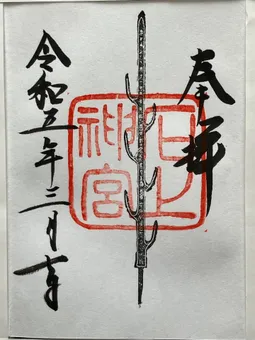 奉拝
石上
神宮
令和五年三月